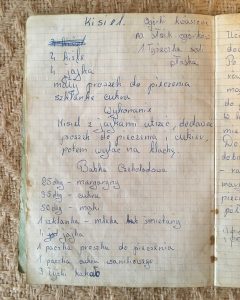 Kisiel.
Ogórki kiszone
na słoik ogórków
1 łyżeczka soli
płaska
2 kisle
4 jajka
mały proszek do pieczenia
szklanka cukru
Wykonanie
Kisiel z jajkami utrzeć, dodawać
proszek do pieczenia i cukier,
potem wylać na blachę.
Babka Czekoladowa
25 dkg - margaryny
35 dkg - cukru
50 dkg - mąki
1 szklanka - mleka lub śmietany
jajka
1 paczka proszku do pieczenia
1 paczka cukru waniliowego
3 łyżki kakao